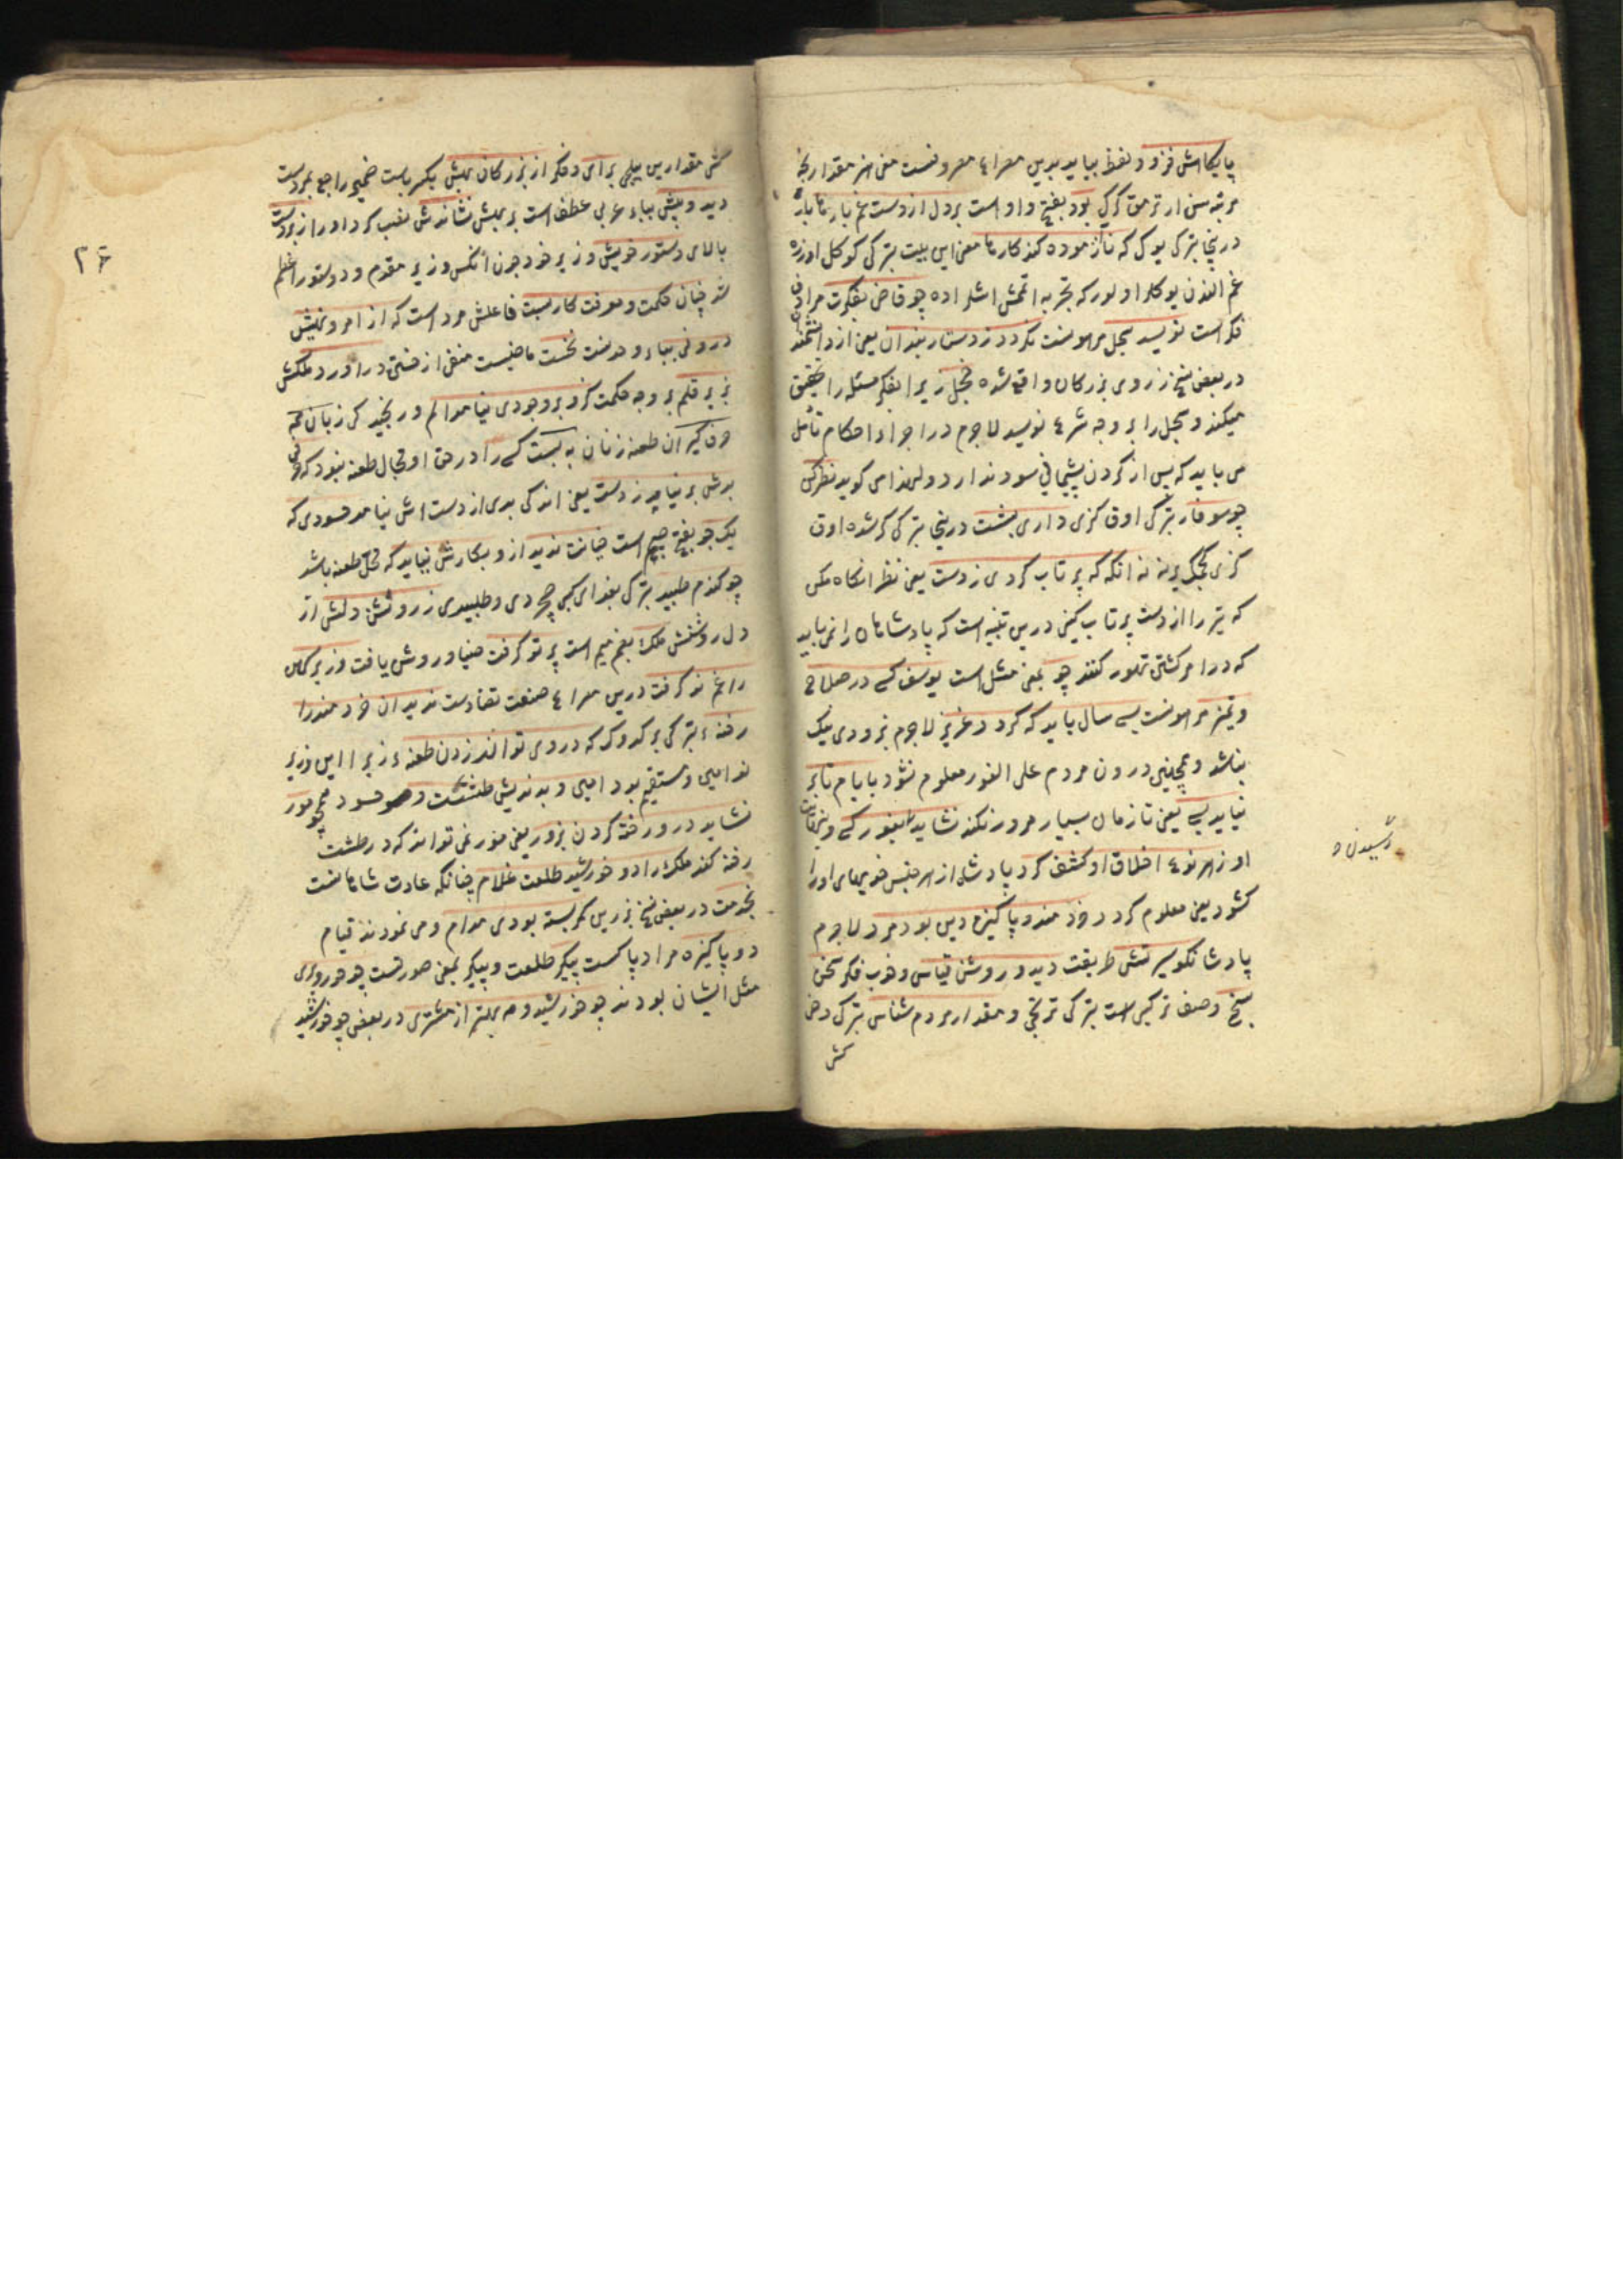 پایکاهش فزود و لفظ بباید بدین مصراع مصروفست یعنی هر مقدار بخرد
مرتبه سن ار ترمق کرک بود بفتح واو است بر دل از دست غم بارها بار
درینجا بترکی یوک که ناآزموده کند کارها معنی این بیت بترکی کوکل اوزره
غم الندن یوکلر اولور که تجربه اتمش اشلر اده چو قاضی بفکرت مرادف
فکر است نویسد سجل مرهونست نکردد ز دستاربندان یعنی از دانشمندان
در بعض نسخ ز روی بزرکان واقع شده خجل زیرا بفکر مسئله را تحقیق
میکند و سجل را بر وجه شرع نویسد لاجرم در اجراء احکام تأمل
می باید که پس از کردن پشیمانی سود ندارد و لهذا می کوید نظر کن
چو سوفار بترکی اوق کزی داری بشست درینجا بترکی کرشده اوق
کزی کجک یرینه نه آنکه که پرتاب کردی ز دست یعنی نظر آنکاه مکن
که تیر را از دست پرتاب کنی درین تنبیه است که پادشاهان را نمی باید
که در امر کشتی تهور کنند چو بمعنی مثل است یوسف کسی در صلاح
و تمیز مرهونست بسی سال باید که کردد عزیز لاجرم بزودی نیک
نباشد و همچنین درون مردم علی الفور معلوم نشود بایام تا بر
نیاید بسی یعنی تا زمان بسیار مرور نکند نشاید بغور کسی
او ز هر نوع اخلاق او کشف کرد پادشاه از هر جنس خویهای او را
کشود یعنی معلوم کرد خردمند و پاکیزه دین بود مرد لاجرم
پادشا نکو سیرتش طریقت دید و روشن قیاس و خوب فکر سخن
سنج وصف ترکیبی است بترکی ترتجی و مقدار مردم شناس بترکی
کش
رسیدن
کش مقدارین بیلجی برای و فکر از بزرکان بهش یکسر باست ضمیر راجع بمردست
دید و بیش بباء عربی عطف است بر بهش نشاندش نصب کرد او را زبردست
بالای دستور خویش وزیر خود چون آنکس وزیر مقدم و دستور اعظم
شد چنان حکمت و معرفت کار بست فاعلش مرد است که از امر و نهیش
درونی بباء وحدت نخست ماضیست منفی از خستن در آورد ملکش
بزیر قلم بر وجه حکمت کزو بر وجودی نیامد الم و رنجید کی زبان همه
حرف کیران طعنه زنان به بست کسی را در حق او مجال طعنه نبود که حرفی
بدش بر نیامد ز دست یعنی اندکی بدی از دستش نیامد حسودی که
یک جو بفتح جیم است خیانت ندید ازو بکارش نیاید که محل طعنه باشد
چو کندم طپید بترکی بغدای کبی و طپیدی ز روشن دلش از
دل روشنش ملک بضم میم است پرتو کرفت ضیا و روشن یافت وزیر کهن
را غم نو کرفت درین مصراع صنعت تضادست ندید آن خردمند را
رخنهٔ بترکی بر کدوک که در وی تواند زدن طعنهٔ زیرا این وزیر
نو امین و مستقیم بود امین و بداندیش طشتست و حسود همچو مور
نشاید در و رخنه کردن بزور یعنی مور نمی تواند که در طشت
رخنه کند ملک را دو خورشید طلعت غلام چنانکه عادت شاهانست
بخدمت در بعض نسخ بزرین کمر بسته بودی مدام و می نمودند قیام
دو پاکیزه مراد پاکست پیکر طلعت و پیکر بمعنی صورتست چو حور و پری
مثل ایشان بودند چو خورشید و مه بهتر از مشتری در بعض چو خورشید